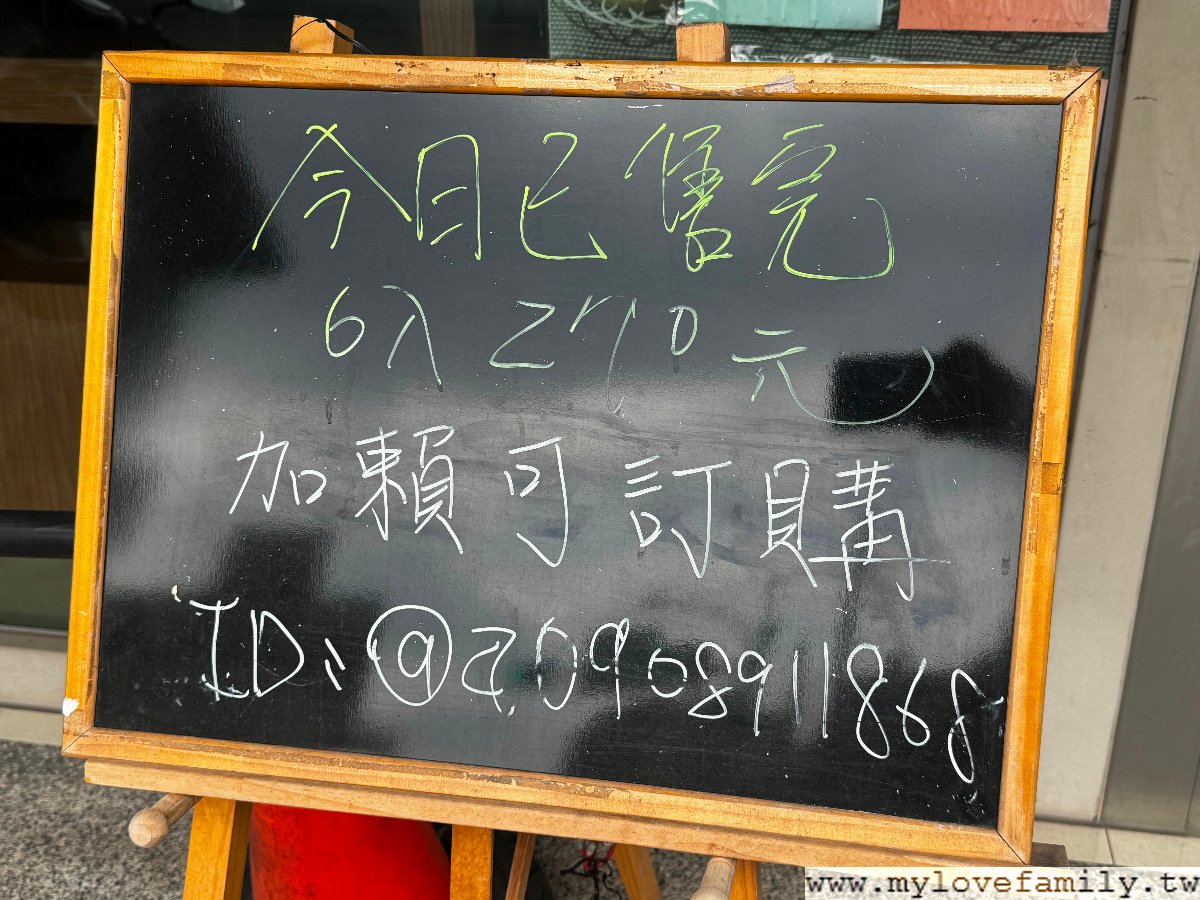 今日已售完
6入270元
加賴可訂購
ID:@20908911868
www.mylovefamily.tw